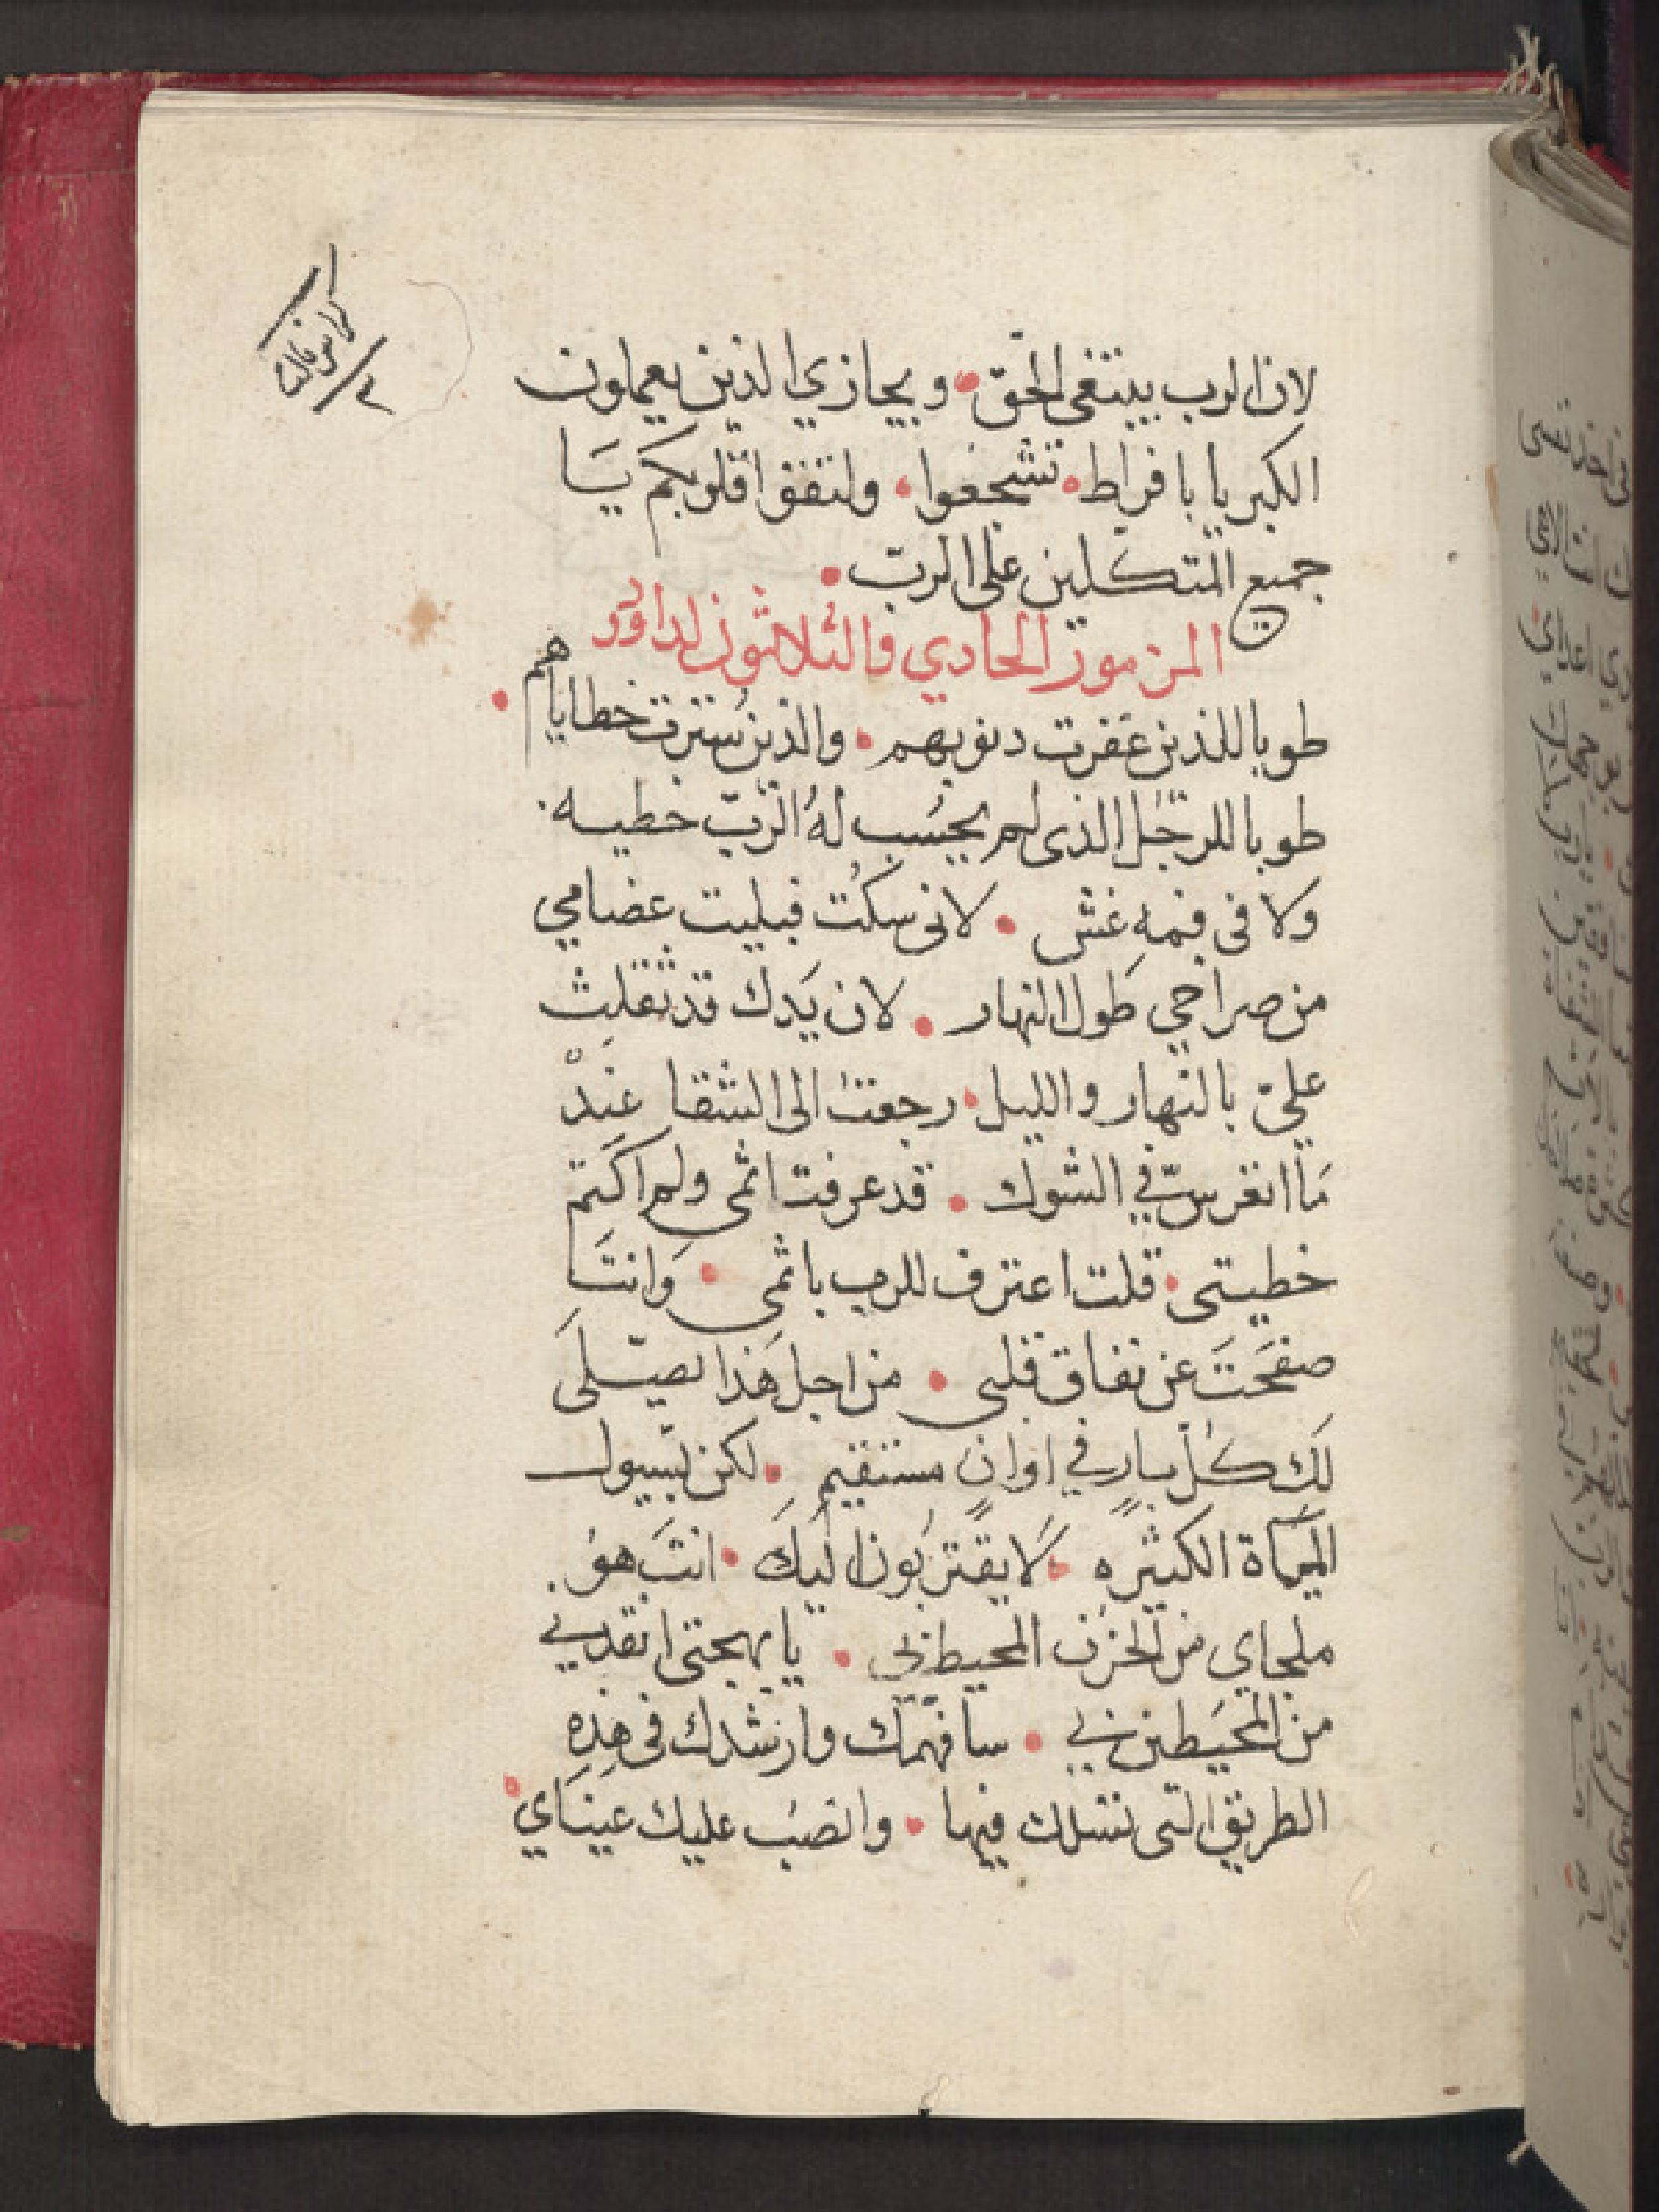 كراس ثالث
٣
لان الرب يبتغى الحق • ويجازي الذين يعملون
الكبريا بافراط • تشجعوا • ولتقوا قلوبكم يا
جميع المتكلين على الرب •
المزمور الحادي والثلاثون لداوود
طوبا للذين غفرت دنوبهم • والذين سترت خطاياهم •
طوبا للرجل الذى لم يحسب له الرب خطيه .
ولا فى فمه غش • لانى سكت فبليت عضامي
من صراخي طول النهار • لان يدك قد ثقلت
علي بالنهار والليل • رجعت الى الشقا عند
ما انغرس في الشوك • قد عرفت اثمى ولم اكتم
خطيتى • قلت اعترف للرب باثمى • وانت
صفحت عن نفاق قلبى • من اجل هذا يصلى
لك كل بار في اوان مستقيم • لكن لسيول
المياة الكثيره • لا يقتربون اليك • انت هو .
ملجاي من الحزن المحيط بي • يا بهجتى انقدني
من المحيطين بي • سافهمك وارشدك فى هذه
الطريق التى تسلك فيها • وانصب عليك عيناي •